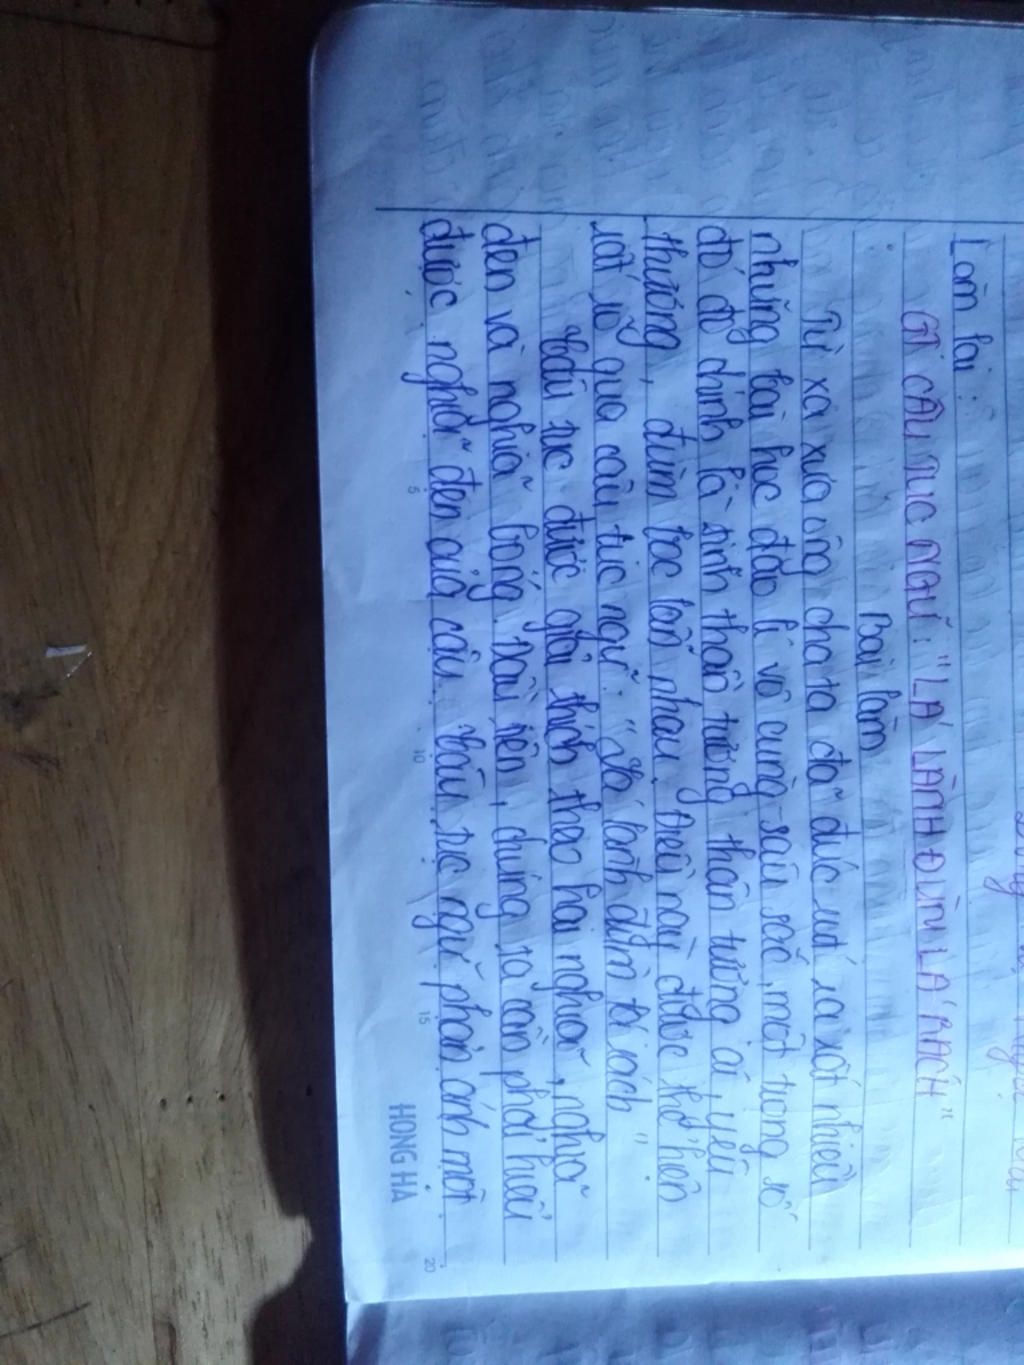 Làm lại:
GT CÂU TỤC NGỮ: "LÁ LÀNH ĐÙM LÁ RÁCH"
Bài làm
Từ xa xưa ông cha ta đã đúc rút ra rất nhiều
những bài học đạo lí vô cùng sâu sắc, một trong số
đó đó chính là tinh thần tương thân tương ái, yêu
thương, đùm bọc lẫn nhau. Điều này được thể hiện
rất rõ qua câu tục ngữ: "Lá lành đùm lá rách"
Câu tục được giải thích theo hai nghĩa, nghĩa
đen và nghĩa bóng. Đầu tiên, chúng ta cần phải hiểu
được nghĩa đen của câu. Câu tục ngữ phản ánh một
5 10 15 20
HONG HA